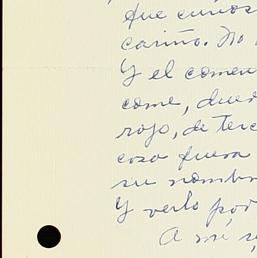 que
cariño. No
Y el comen
come, duer
rojo, de terc
cosa fuera
su nombr
Y verlo por
A mí s